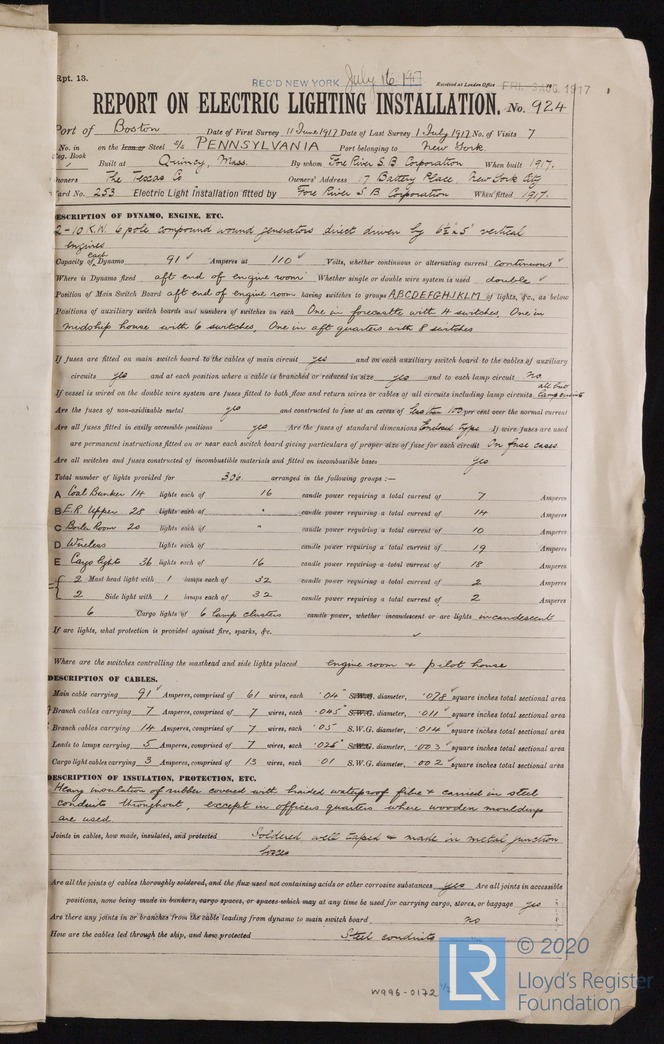 Rpt. 13.
REC'D NEW YORK July 16 1917 Received at London Office FRI. 3 AUG. 1917
REPORT ON ELECTRIC LIGHTING INSTALLATION. No. 924
Port of Boston Date of First Survey 11 June 1917 Date of Last Survey 1 July 1917 No. of Visits 7
No. in Reg. Book on the Iron or Steel S/S PENNSYLVANIA Port belonging to New York
Built at Quincy, Mass. By whom Fore River S.B Corporation When built 1917.
Owners The Texas Co Owners' Address 17 Battery Place, New York City
Yard No. 253 Electric Light Installation fitted by Fore River S.B Corporation When fitted 1917.
DESCRIPTION OF DYNAMO, ENGINE, ETC.
2-10 K.W. 6 pole compound wound generators direct driven by 6½ x 5" vertical
engines
Capacity of each Dynamo 91 Amperes at 110 Volts, whether continuous or alternating current continuous
Where is Dynamo fixed aft end of engine room Whether single or double wire system is used double
Position of Main Switch Board aft end of engine room having switches to groups ABCDEFGHIJKLM of lights, &c., as below
Positions of auxiliary switch boards and numbers of switches on each One in forecastle with 4 switches, One in
midship house with 6 switches, One in aft quarters with 8 switches
If fuses are fitted on main switch board to the cables of main circuit yes and on each auxiliary switch board to the cables of auxiliary
circuits yes and at each position where a cable is branched or reduced in size yes and to each lamp circuit no
If vessel is wired on the double wire system are fuses fitted to both flow and return wires or cables of all circuits including lamp circuits all but lamp circuits
Are the fuses of non-oxidizable metal yes and constructed to fuse at an excess of less than 100 per cent over the normal current
Are all fuses fitted in easily accessible positions yes Are the fuses of standard dimensions Enclosed type If wire fuses are used
are permanent instructions fitted on or near each switch board giving particulars of proper size of fuse for each circuit On fuse cases
Are all switches and fuses constructed of incombustible materials and fitted on incombustible bases yes
Total number of lights provided for 306 arranged in the following groups :—
A Coal Bunker 14 lights each of 16 candle power requiring a total current of 7 Amperes
B E.R. Upper 28 lights each of " candle power requiring a total current of 14 Amperes
C Boiler Room 20 lights each of " candle power requiring a total current of 10 Amperes
D Wireless lights each of candle power requiring a total current of 19 Amperes
E Cargo lights 36 lights each of 16 candle power requiring a total current of 18 Amperes
2 Mast head light with 1 lamps each of 32 candle power requiring a total current of 2 Amperes
2 Side light with 1 lamps each of 32 candle power requiring a total current of 2 Amperes
6 Cargo lights of 6 lamp clusters candle power, whether incandescent or arc lights incandescent
If arc lights, what protection is provided against fire, sparks, &c.
Where are the switches controlling the masthead and side lights placed engine room & pilot house
DESCRIPTION OF CABLES.
Main cable carrying 91 Amperes, comprised of 61 wires, each .04" S.W.G. diameter, .078 square inches total sectional area
Branch cables carrying 7 Amperes, comprised of 7 wires, each .045" S.W.G. diameter, .011 square inches total sectional area
Branch cables carrying 14 Amperes, comprised of 7 wires, each .05 S.W.G. diameter, .014 square inches total sectional area
Leads to lamps carrying 5 Amperes, comprised of 7 wires, each .025" S.W.G. diameter, .003 square inches total sectional area
Cargo light cables carrying 3 Amperes, comprised of 13 wires, each .01 S.W.G. diameter, .002 square inches total sectional area
DESCRIPTION OF INSULATION, PROTECTION, ETC.
Heavy insulation of rubber covered with braided waterproof fibre & carried in steel
conduits throughout, except in officers quarters where wooden mouldings
are used.
Joints in cables, how made, insulated, and protected Soldered well taped & made in metal junction
boxes
Are all the joints of cables thoroughly soldered, and the flux used not containing acids or other corrosive substances yes Are all joints in accessible
positions, none being made in bunkers, cargo spaces, or spaces which may at any time be used for carrying cargo, stores, or baggage yes
Are there any joints in or branches from the cable leading from dynamo to main switch board no
How are the cables led through the ship, and how protected Steel conduits
W996-0172 1/2
LR
© 2020
Lloyd's Register
Foundation